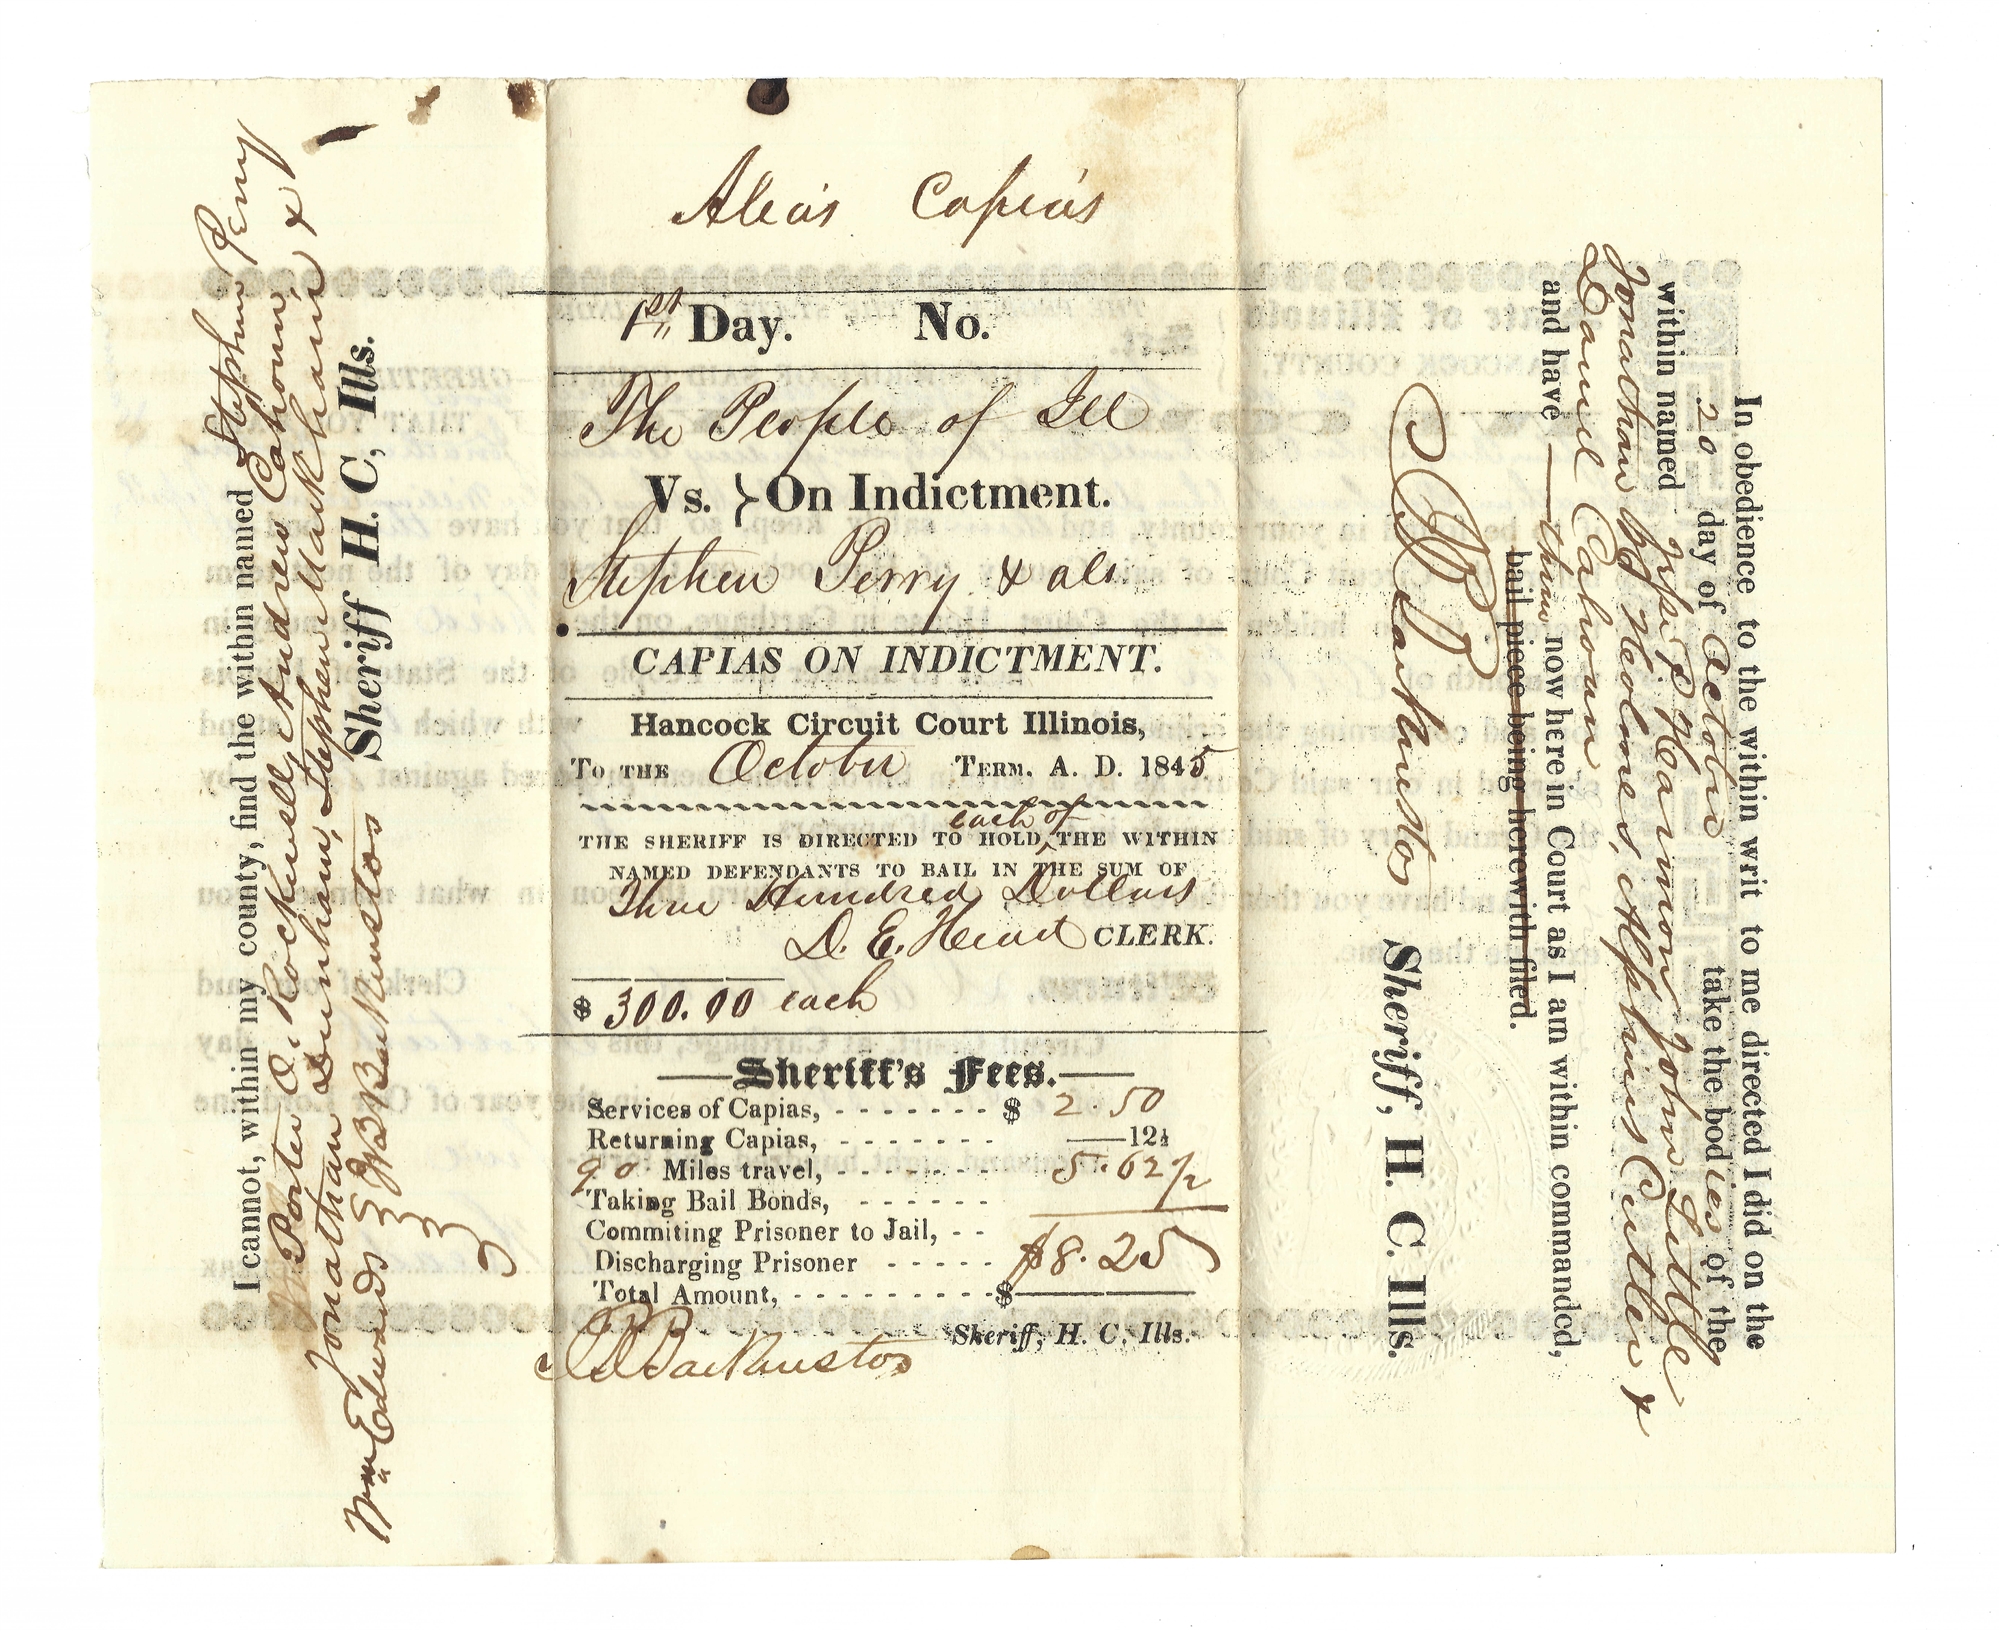 Alias Capias
1st Day. No.
The People of Ill
Vs. } On Indictment.
Stephen Perry & als.
CAPIAS ON INDICTMENT.
Hancock Circuit Court Illinois,
To the October Term. A. D. 1845
each of
THE SHERIFF IS DIRECTED TO HOLD ^ THE WITHIN
NAMED DEFENDANTS TO BAIL IN THE SUM OF
Three Hundred Dollars
D. E. Head CLERK.
$ 300.00 each
Sheriff's Fees.
Services of Capias, - - - - - - - $ 2.50
Returning Capias, - - - - - - - 12½
90 Miles travel, - - - - - - - 5.62½
Taking Bail Bonds, - - - - - -
Commiting Prisoner to Jail, - -
Discharging Prisoner - - - - - $8.25
Total Amount, - - - - - - - - - $
Sheriff, H. C. Ills.
J B Backenstos
In obedience to the within writ to me directed I did on the
20 day of October take the bodies of the
within named Jesse P. Harmon John Little
Jonathan H Holmes, Alpheus Cutler &
Daniel Cahoun
and have them now here in Court as I am within commanded,
bail piece being herewith filed.
J B Backenstos Sheriff, H. C. Ills.
I cannot, within my county, find the within named Stephen Perry
Porter O. Rockwell, Andrew Cahoun,
Jonathan Dunham, Stephen Markham &
Wm Edwards J B Backenstos Sheriff H. C, Ills.